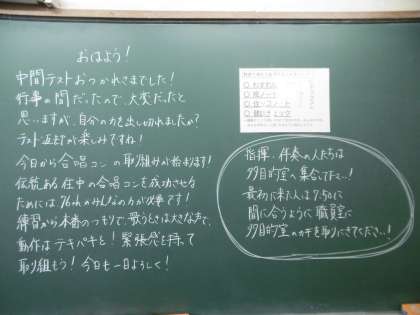 おはよう!
中間テストおつかれさまでした!
行事の間だったので、大変だったと
思いますが、自分の力を出し切れましたか?
テスト返却が楽しみですね!
今日から合唱コンの取り組みが始まります!
伝統ある 中の合唱コンを成功させる
ためには みんなの力が必要です!
練習から本番のつもりで、歌うときは大きな声で、
動作はテキパキと!緊張感を持って
取り組もう!今日も一日よろしく!
指揮、伴奏の人たちは
多目的室の集合です…!
最初に来た人は7:50に
間に合うように職員室に
多目的室のカギを取りにきてくださ…!